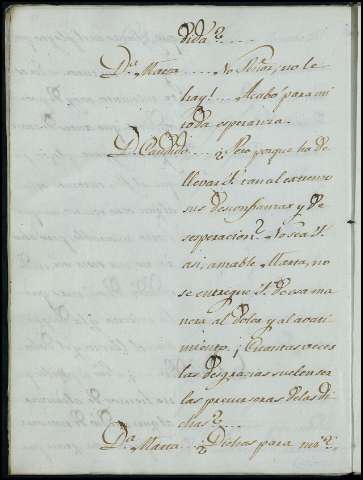 dida?....
Dª. Marta.... No Señor, no le
hay!.... Acabó para mi
toda esperanza.
D. Candido... ¿Pero porque ha de
llevar V. tan al extremo
sus desconfianzas y de
sesperacion? No sea V.
asi, amable Marta, no
se entregue V. de esa ma
nera al dolor y al avati
miento. ¡Cuantas veces
las desgracias suelen ser
las precursoras de las di
chas?....
Dª. Marta... ¿Dichas para mi?,